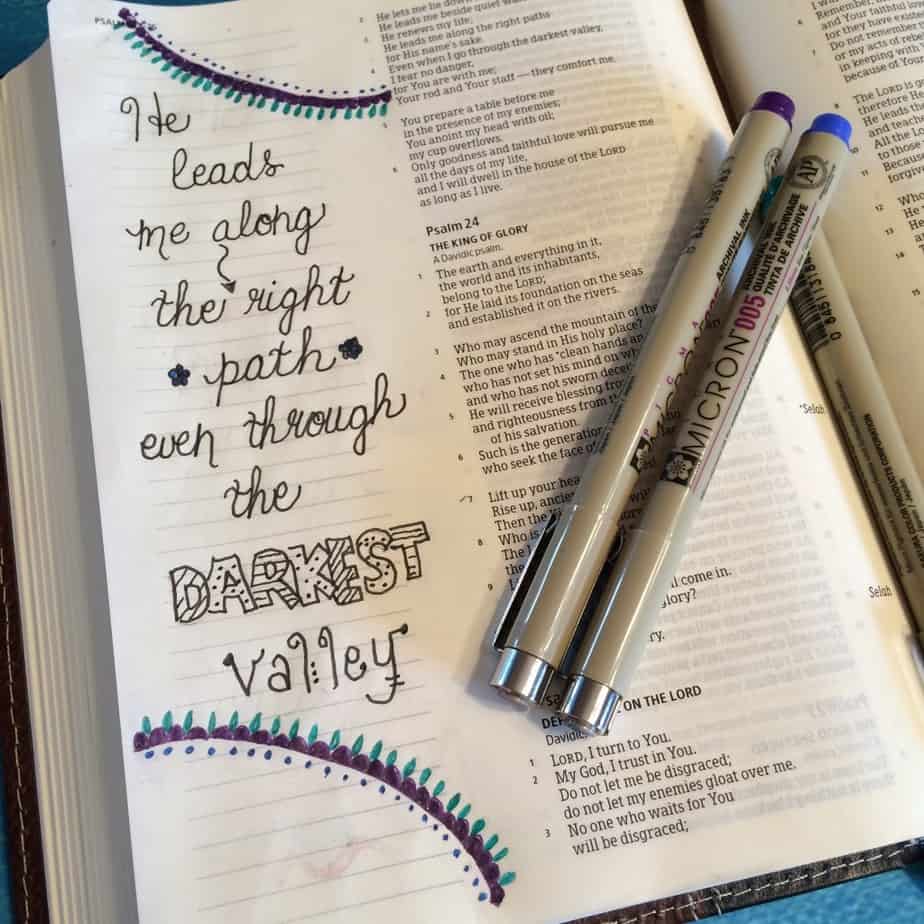 PSAL
He
leads
me along
the right
path
even through
the
DARKEST
valley
2 He lets me lie down
He leads me beside quiet wa
3 He renews my life;
He leads me along the right paths
for His name's sake.
4 Even when I go through the darkest valley,
I fear no danger,
for You are with me;
Your rod and Your staff — they comfort me.
5 You prepare a table before me
in the presence of my enemies;
You anoint my head with oil;
my cup overflows.
6 Only goodness and faithful love will pursue me
all the days of my life,
and I will dwell in the house of the LORD
as long as I live.
Psalm 24
THE KING OF GLORY
A Davidic psalm.
1 The earth and everything in it,
the world and its inhabitants,
belong to the LORD;
2 for He laid its foundation on the seas
and established it on the rivers.
3 Who may ascend the mountain of the
Who may stand in His holy place?
4 The one who has clean hands an
who has not set his mind on wh
and who has not sworn decei
5 He will receive blessing fro
and righteousness from t
of his salvation.
6 Such is the generation
who seek the face of
7 Lift up your hea
Rise up, ancien
Then the
8 Who is
The L
the
9
l come in.
glory?
ry.
"Selah
Selah
ON THE LORD
Davidic
1 LORD, I turn to You.
2 My God, I trust in You.
Do not let me be disgraced;
do not let my enemies gloat over me.
3 No one who waits for You
will be disgraced;
ARCHIVAL INK
MICRON 005
ARCHIVAL INK
QUALITÉ D'ARCHIVAGE
TINTA DE ARCHIVE
AP
Remember,
and Your faithful
for they have exist
7 Do not remember
or my acts of rebel
in keeping with
because of Your
8 The LORD is g
therefore He
9 He leads the
and teache
10 All the
to those
11 Because
forgive
12 Who
13
14
15